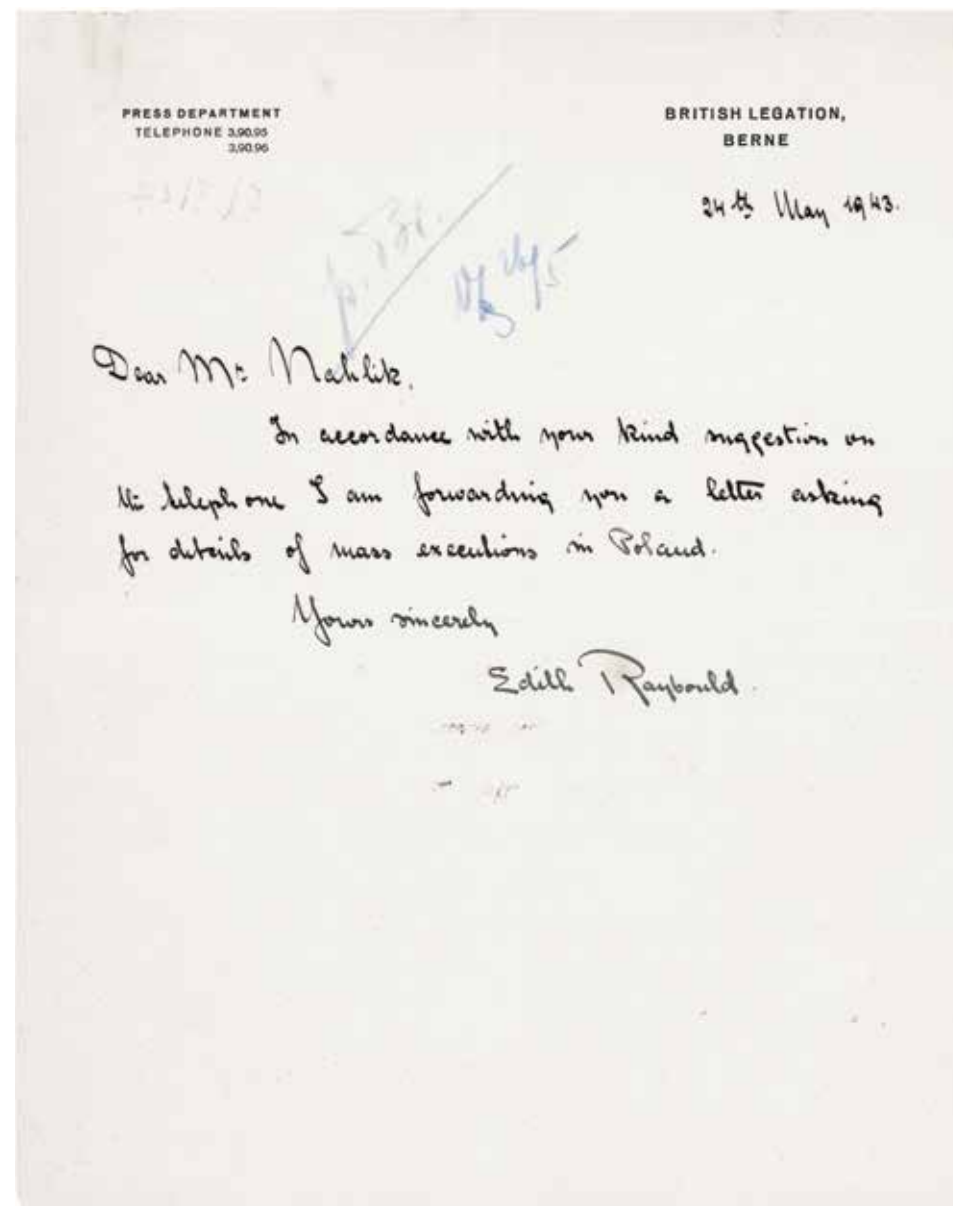 PRESS DEPARTMENT
TELEPHONE 3.90.95
3.90.96
BRITISH LEGATION,
BERNE
24th May 1943.
Dear Mr Nahlik,
In accordance with your kind suggestion on
the telephone I am forwarding you a letter asking
for details of mass executions in Poland.
Yours sincerely
Edith Raybould.